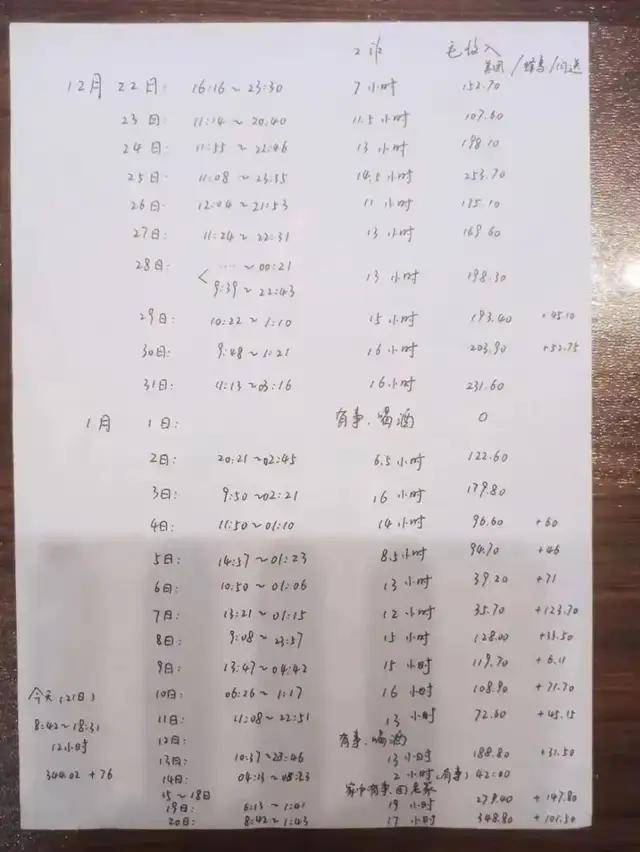 工作 毛收入
美团/蜂鸟/闪送
12月 22日: 16:16~23:30 7小时 152.70
23日: 11:14~20.40 11.5小时 107.60
24日: 11:55~22:46 13小时 198.10
25日: 11:08~23:55 14.5小时 253.70
26日: 12:04~21:53 11小时 115.10
27日: 11:24~22:31 13小时 169.60
28日: ····~00:21
9:39~22:43 13小时 198.30
29日: 10:22~1:10 15小时 193.40 +45.10
30日: 9:48~1:21 16小时 203.90 +52.75
31日: 11:13~03:16 16小时 231.60
1月 1日: 有事、喝酒 0
2日: 20:21~02:45 6.5小时 122.60
3日: 9:50~02:21 16小时 179.80
4日: 11:50~01:10 14小时 96.60 +60
5日: 14:57~01:23 8.5小时 94.70 +46
6日: 10:50~01:06 13小时 39.20 +71
7日: 13:21~01:15 12小时 35.70 +123.70
8日: 9:08~23:57 15小时 128.00 +33.50
9日: 13:47~04:42 15小时 119.70 +6.11
10日: 06:26~1:17 16小时 108.90 +71.70
11日: 11:08~22:51 13小时 72.60 +45.15
12日: 有事、喝酒
13日: 10:37~23:46 13小时 188.80 +31.50
14日: 04:13~08:23 2小时(有事) 42.00
15~18日 家中有事、回老家
19日: 6:13~1:41 19小时 279.40 +147.80
20日: 8:42~1:43 17小时 348.80 +101.50
今天(21日)
8:42~18:31
12小时
344.02+76